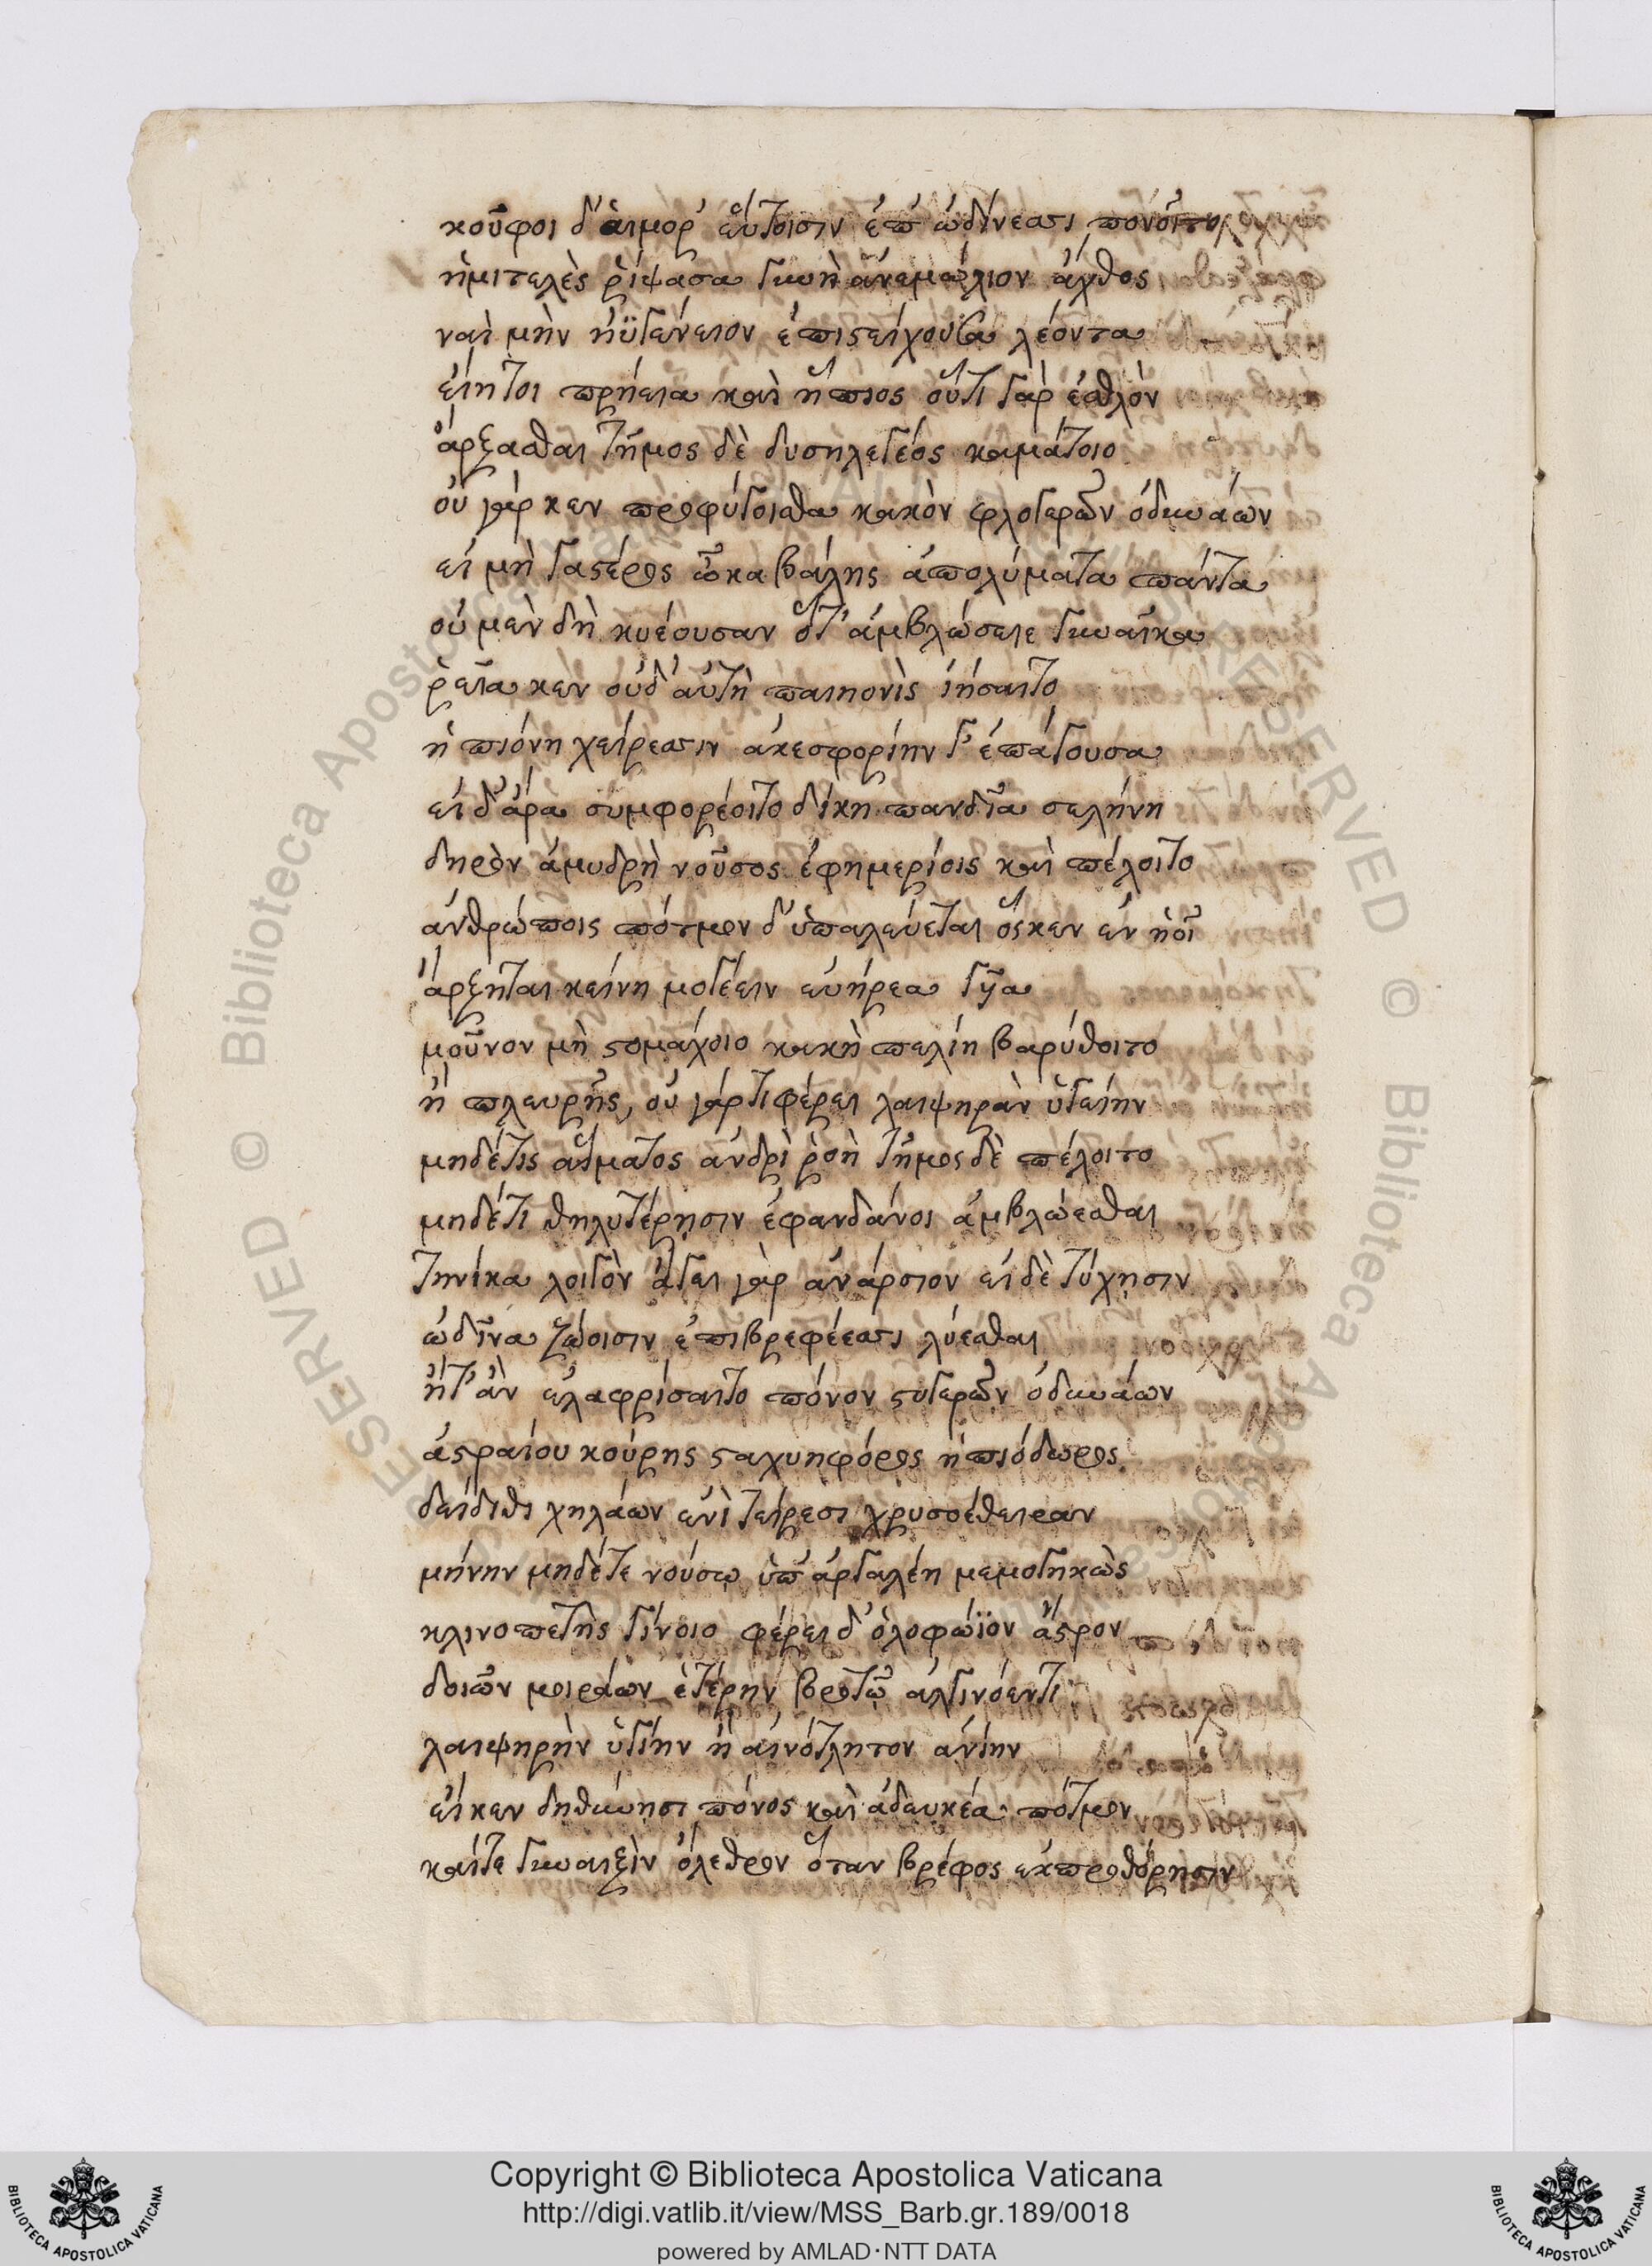 κοῦφοι δ' αἱμορ' εὖτοισιν ἐπ' ὠδίνεσσι πονοῖτο
ἡμιτελὲς ῥίψασα γυνὴ ἀνεμώλιον ἄχθος
ναὶ μὴν ἠϋγένειον ἐπιστείχουσα λέοντα
εἴη τοι πρήεια καὶ ἤπιος οὔτι γὰρ ἐσθλὸν
ἄρξασθαι τῆμος δὲ δυσηλεγέος καμάτοιο
οὐ γάρ κεν προφύγοισθα κακὸν φλογερῶν ὀδυνάων
εἰ μὴ γαστέρος ὦκα βάλης ἀπολύματα πάντα
οὐ μὲν δὴ κυέουσαν ὅτ' ἀμβλώσειε γυναῖκα
ῥεῖα κεν οὐδ' αὐτὴ παιηονὶς ἰήσαιτο
ἠπιόνη χείρεσσιν ἀκεσφορίην γ' ἐπάγουσα
εἰ δ' ἄρα συμφορέοιτο δίκη πανδῖα σελήνη
δηρὸν ἀμυδρὴ νοῦσος ἐφημερίοις καὶ πέλοιτο
ἀνθρώποις πότμον δ' ὑπαλεύεται ὅς κεν ἐν ἠοῖ
ἄρξηται κείνη μογέειν εὐήρεα γῦα
μοῦνον μὴ στομάχοιο κακὴ πελίη βαρύθοιτο
ἢ πλευρῆς, οὐ γάρ τι φέρει λαιψηρὰν ὑγείην
μηδέ τις αἵματος ἀνδρὶ ῥοὴ τῆμος δὲ πέλοιτο
μηδέ τι θηλυτέρησιν ἐφανδάνοι ἀμβλώεσθαι
τηνίκα λοιγὸν ἄγει γὰρ ἀνάρσιον εἰ δὲ τύχησιν
ὠδῖνα ζώοισιν ἐπιβρεφέεσσι λύεσθαι
ἥ τ' ἂν ἐλαφρίσαιτο πόνον στυγερῶν ὀδυνάων
ἀστραίου κούρης σταχυηφόρος ἠπιόδωρος
δείδιθι χηλάων ἐνὶ τείρεσι χρυσοέθειραν
μήνην μηδέ τε νούσῳ ὑπ' ἀργαλέη μεμογηκὼς
κλινοπετὴς γίνοιο φέρει δ' ὀλοφώϊον ἄστρον
δοιῶν μοιράων ἑτέρην βροτῷ ἀλγινόεντι
λαιψηρὴν ὑγίην ἢ αἰνότλητον ἀνίην
εἴ κεν δηθύνησι πόνος καὶ ἀδευκέα πότμον
καί τε γυναιξὶν ὄλεθρον ὅταν βρέφος ἐκπροθόρησιν
Copyright © Biblioteca Apostolica Vaticana
http://digi.vatlib.it/view/MSS_Barb.gr.189/0018
powered by AMLAD·NTT DATA